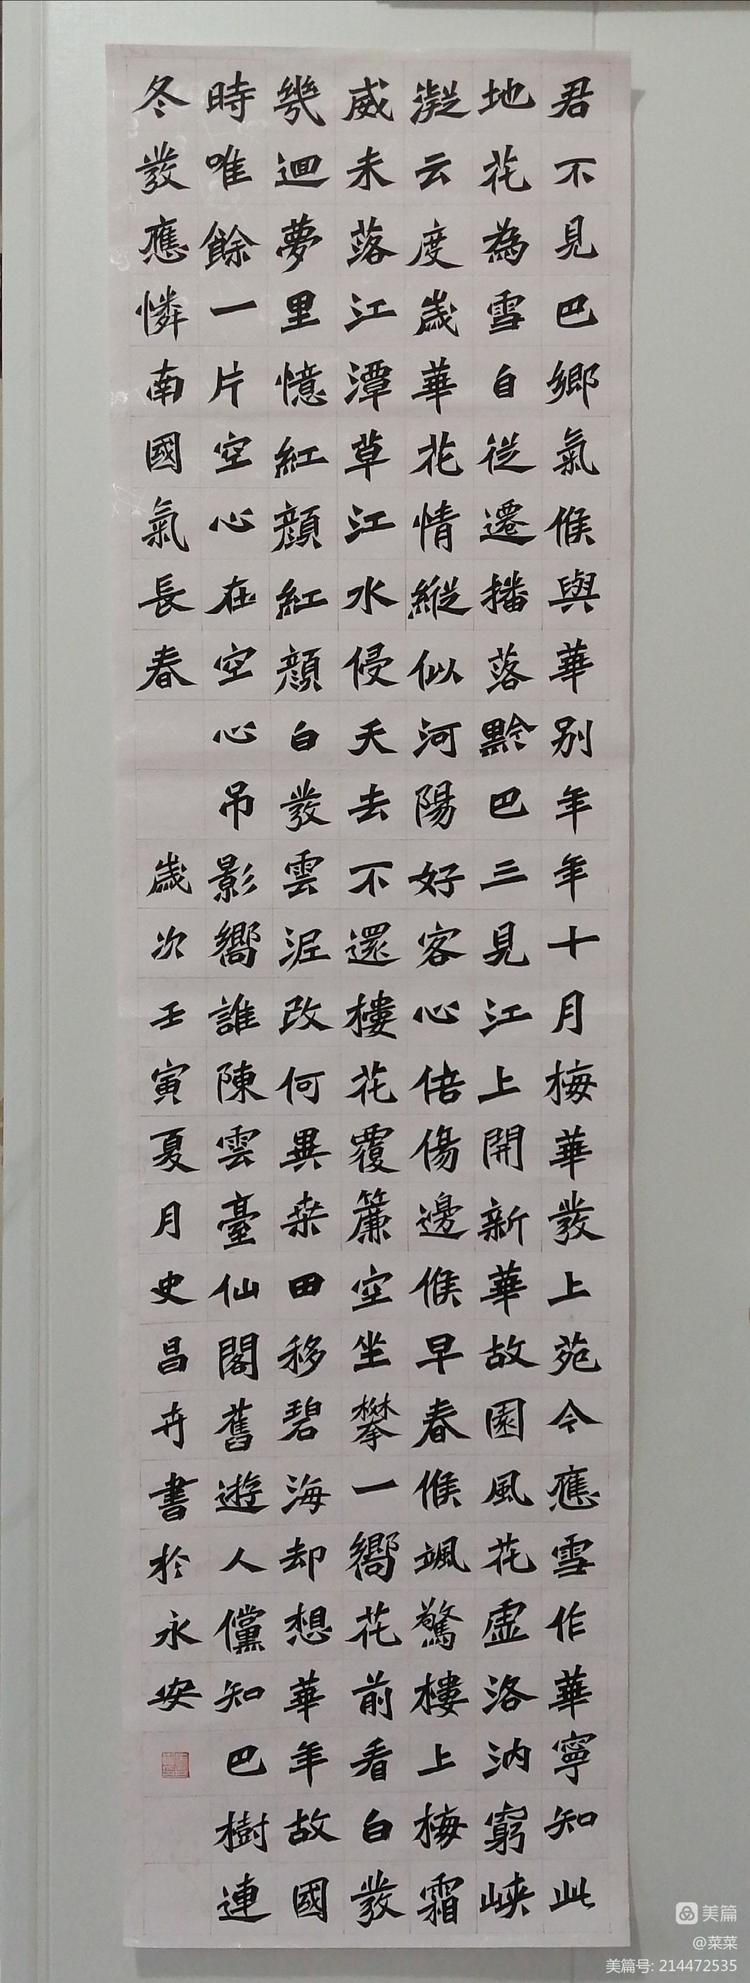 君不見巴鄉氣候與華別年年十月梅華發上苑今應雪作華寧知此
地花為雪自從遷播落黔巴三見江上開新華故園風花虛洛汭窮峽
凝云度歲華花情縱似河陽好客心倍傷邊候早春候颯驚樓上梅霜
威未落江潭草江水侵天去不還樓花覆簾空坐攀一嚮花前看白發
幾迴夢里憶紅顏紅顏白發雲泥改何異桒田移碧海却想華年故國
時唯餘一片空心在空心吊影嚮誰陳雲臺仙閣舊遊人儻知巴樹連
冬發應憐南國氣長春
歲次壬寅夏月史昌卉書於永安
美篇
@菜菜
美篇号: 214472535